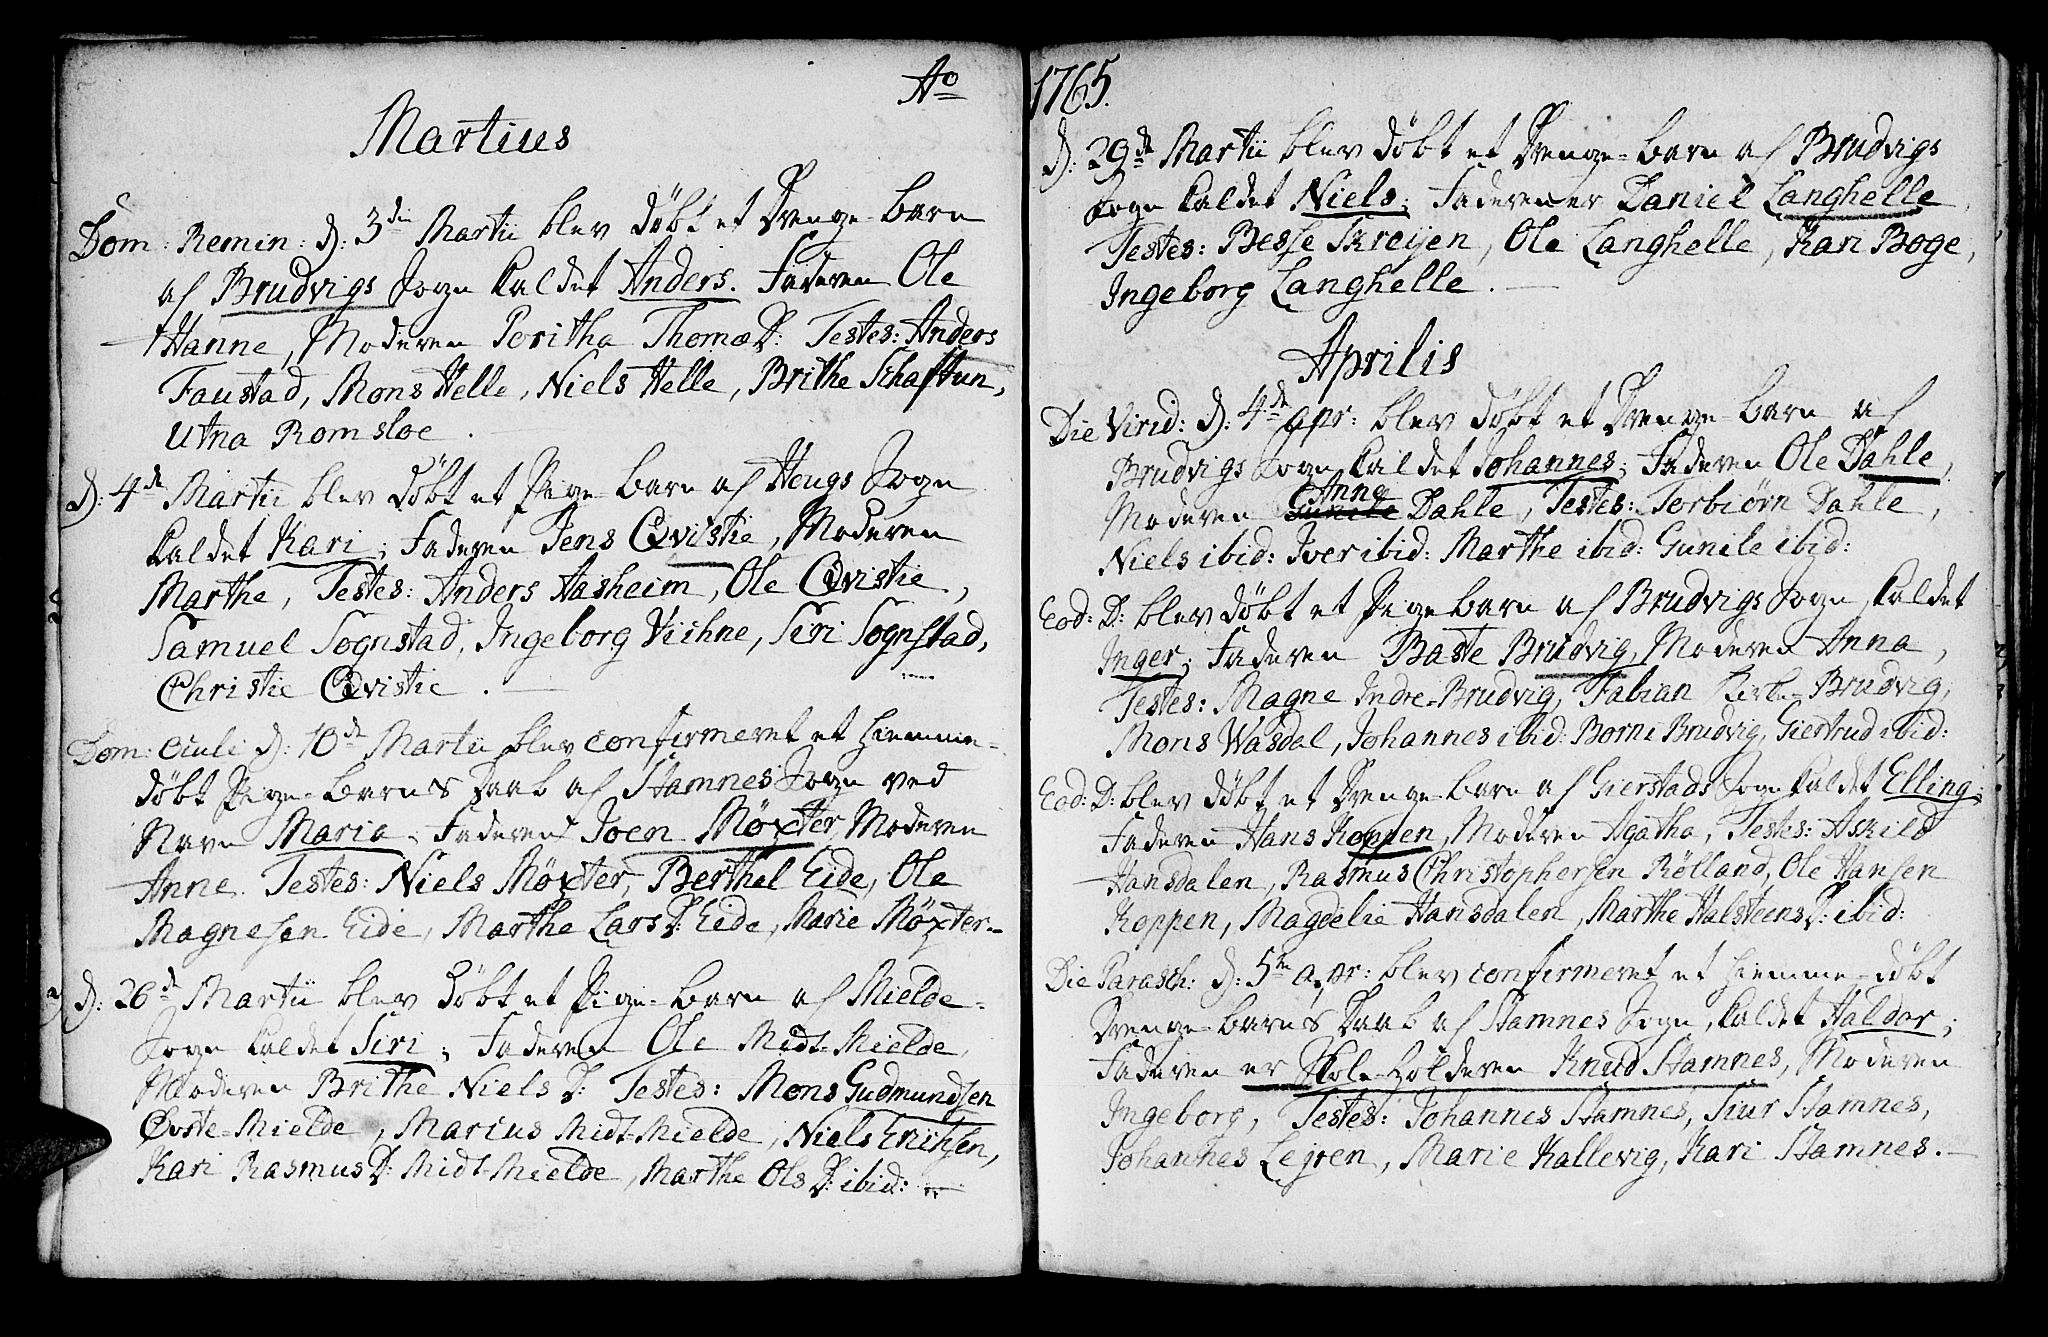 Ao
Martius
Dom: Remin: d: 3die Martii blev døbt et Drenge-Barn
af Brudvigs Sogn kaldet Anders. Faderen Ole
Hanne, Moderen Peritha Thomæ D: Testes: Anders
Faustad, Mons Helle, Niels Helle, Brithe Schaftun,
Utna Romsloe.
d: 4de Martii blev døbt et Pige-Barn af Hougs Sogn
kaldet Kari; Faderen Jens Qvistie, Moderen
Marthe, Testes: Anders Aasheim, Ole Qvistie,
Samuel Sognstad, Ingeborg Viihne, Siri Sognstad,
Christie Qvistie.
Dom: Oculi d: 10de Martii blev confirmeret et hiemme-
døbt Pige-Barns Daab af Stamnes Sogn ved
Navn Maria, Faderen Joen Møxter, Moderen
Anne. Testes: Niels Møxter, Berthel Eide, Ole
Magnesen Eide, Marthe Lars D: Eide, Marie Møxter.-
d: 26de Martii blev døbt et Pige-Barn af Mielde-
Sogn kaldet Siri; Faderen Ole Midt-Mielde,
Moderen Brithe Niels D: Testes: Mons Gudmundsen
Øvste-Mielde, Marius Midt-Mielde, Niels Erichsen,
Kari Rasmus D: Midt-Mielde, Marthe Ols D: ibid:
1765.
d: 29de Martii blev døbt et Drenge-Barn af Brudvigs
Sogn kaldet Niels; Faderen er Daniel Langhelle,
Testes: Besse Skreijen, Ole Langhelle, Kari Boge,
Ingeborg Langhelle.
Aprilis
Die Virid: d: 4de apr: blev døbt et Drenge-Barn af
Brudvigs Sogn kaldet Johannes; Faderen Ole Dahle,
Moderen Gunile Anna Dahle, Testes: Torbiørn Dahle,
Niels ibid: Iver ibid: Marthe ibid: Gunile ibid:
Eod: D: blev døbt et Pige Barn af Brudvigs Sogn kaldet
Inger; Faderen Baste Brudvig, Moderen Anna,
Testes: Magne Indre-Brudvig, Fabian Kirke-Brudvig,
Mons Wasdal, Johannes ibid: Borni Brudvig, Giertrud ibid:
Eod: D: blev døbt et Drenge-Barn af Gierstads Sogn kaldet Elling;
Faderen Hans Koppen, Moderen Agatha, Testes: Askild
Hansdalen, Rasmus Christophersen Rølland, Ole Hansen
Koppen, Magdelie Hansdalen, Marthe Halsteens D: ibid:
Die Parasch: d: 5te apr: blev confirmeret et hiemme-døbt
Drenge-Barns Daab af Stamnes Sogn, kaldet Haldor;
Faderen er Skole-Holderen Knud Stamnes, Moderen
Ingeborg, Testes: Johannes Stamnes, Siur Stamnes,
Johannes Lejren, Marie Kallevig, Kari Stamnes.